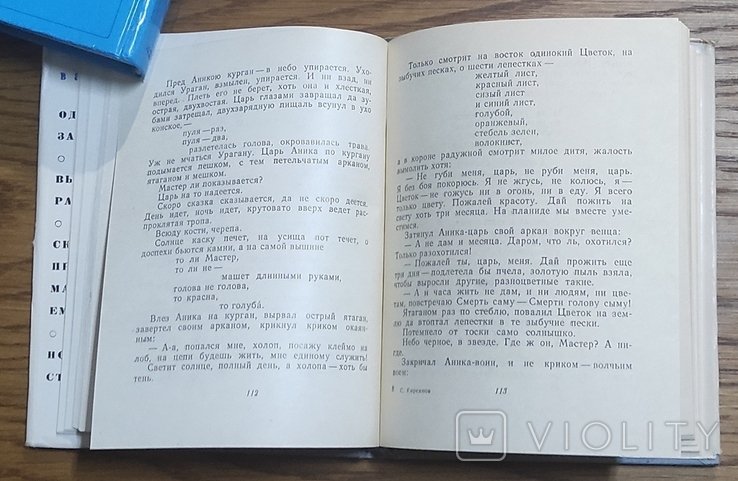 В
ОД
ЗА
ВЫ
РА
СК
ПР
МА
ЕМ
НО
СТ
Пред Аникою курган — в небо упирается. Ухо-
дился Ураган, взмылен, упирается. И ни взад, ни
вперед. Плеть его не берет, хоть она и хлесткая,
острая, двухвостая. Царь глазами завращал да зу-
бами затрещал, двухзарядную пищаль всунул в ухо
конское,—
пуля — раз,
пуля — два,
разлетелась голова, окровавилась трава.
Уж не мчаться Урагану. Царь Аника по кургану
подымается пешком, с тем петельчатым арканом,
ятаганом и мешком.
Мастер ли показывается?
Царь на то надеется.
Скоро сказка сказывается, да не скоро деется.
День идет, ночь идет, крутовато вверх ведет рас-
проклятая тропа.
Всюду кости, черепа.
Солнце каску печет, на усища пот течет, о
доспехи бьются камни, а на самой вышине
то ли Мастер,
то ли не —
машет длинными руками,
голова не голова,
то красна,
то голуба́.
Влез Аника на курган, вырвал острый ятаган,
завертел своим арканом, крикнул криком окаян-
ным:
— А-а, попался мне, холоп, посажу клеймо на
лоб, на цепи будешь жить, мне единому служить!
Светит солнце, полный день, а холопа — хоть бы
тень.
112
Только смотрит на восток одинокий Цветок, на
зыбучих песках, о шести лепестках —
желтый лист,
красный лист,
сизый лист
и синий лист,
голубой,
оранжевый,
стебель зелен,
волокнист,
а в короне радужной смотрит милое дитя, жалость
вымолить хотя:
— Не губи меня, царь, не руби меня, царь.
Я без боя покорюсь. Я не жгусь, не колюсь, я —
Цветок — не гожусь ни в огонь, ни в еду. Я всего
только цвету. Пожалей красоту. Дай пожить на
свету хоть три месяца. На планиде мы вместе уме-
стимся.
Затянул Аника-царь свой аркан вокруг венца:
— А не дам и месяца. Даром, что ль, охотился?
Только разохотился!
— Пожалей ты, царь, меня. Дай прожить еще
три дня — подлетела бы пчела, золотую пыль взяла,
чтобы выросли другие, разноцветные такие.
— А и часа жить не дам, и ни людям, ни цве-
там, повстречаю Смерть саму — Смерти голову сыму!
Ятаганом раз по стеблю, повалил Цветок на зем-
лю да втоптал лепестки в те зыбучие пески.
Потемнело от тоски само солнышко.
Небо черное, в звезде. Где ж он, Мастер? А ни-
где.
Закричал Аника-воин, и не криком — волчьим
воем:
С. Кирсанов
113
VIOLITY